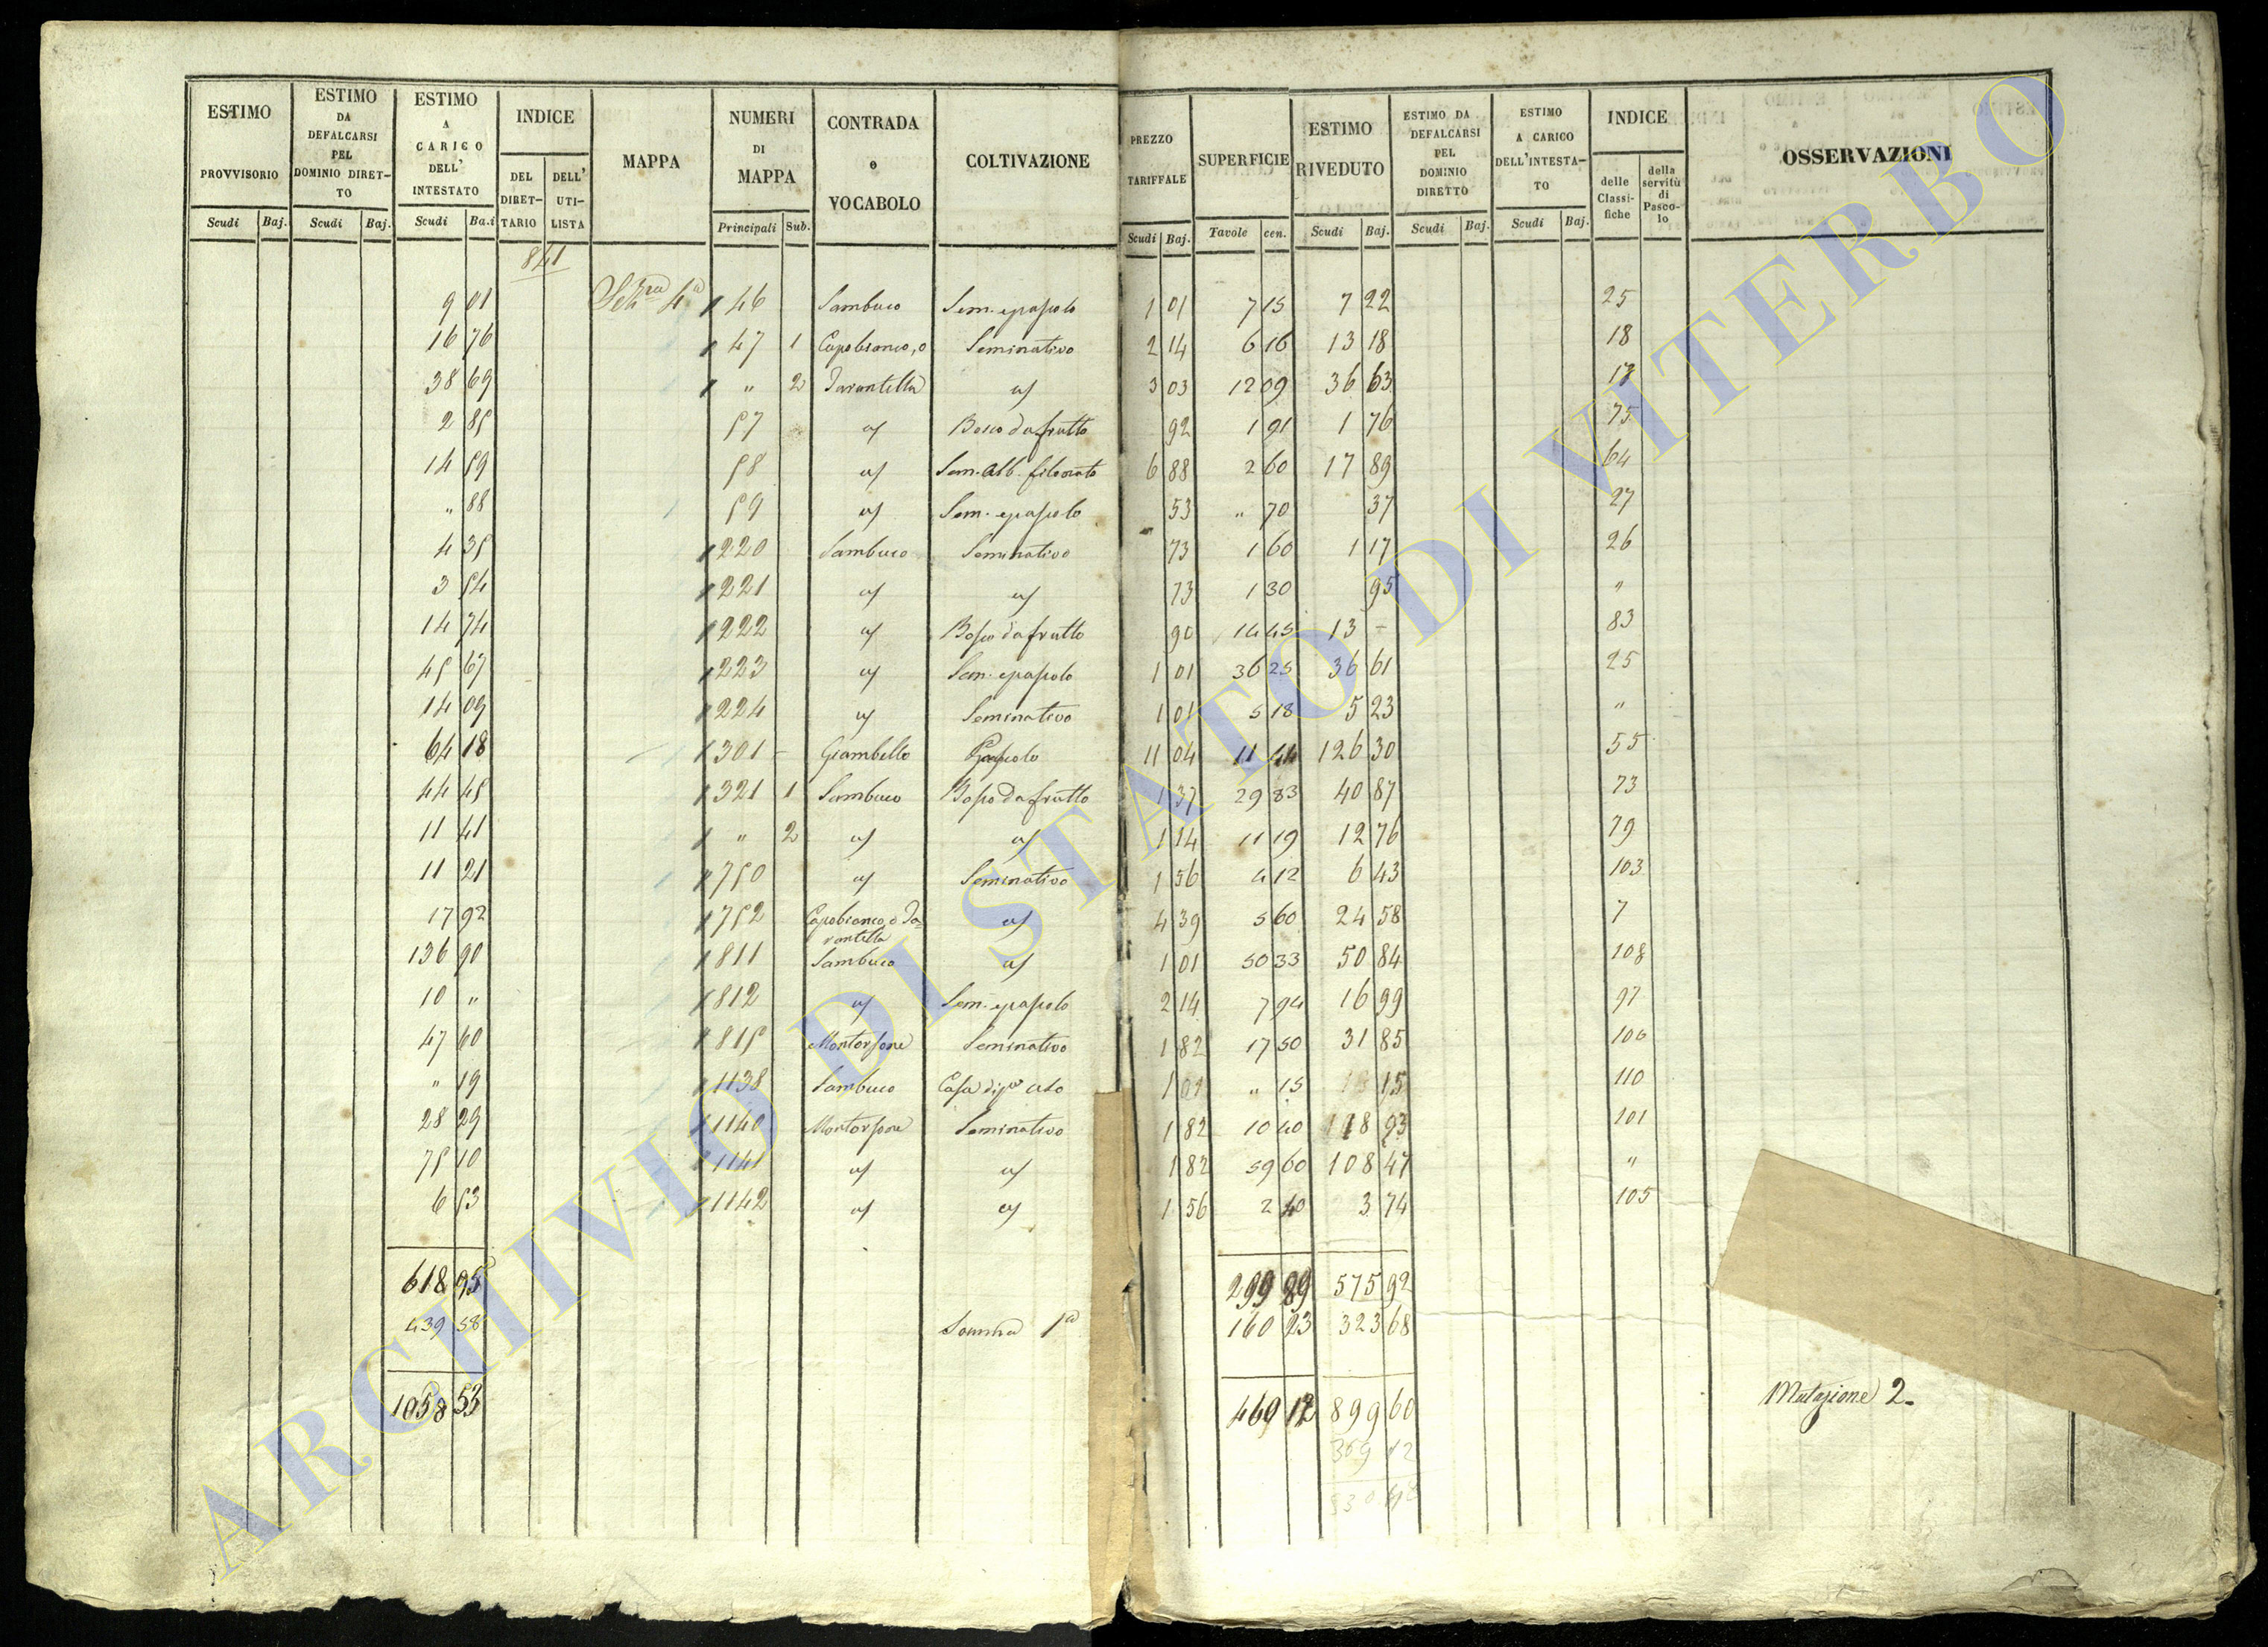 ESTIMO PROVVISORIO Scudi Baj. | ESTIMO DA DEFALCARSI PEL DOMINIO DIRET-TO Scudi Baj. | ESTIMO A CARICO DELL' INTESTATO Scudi Ba.i | INDICE DEL DIRET-TARIO DELL' UTI-LISTA | MAPPA | NUMERI DI MAPPA Principali Sub. | CONTRADA o VOCABOLO | COLTIVAZIONE | PREZZO TARIFFALE Scudi Baj. | SUPERFICIE Tavole cen. | ESTIMO RIVEDUTO Scudi Baj. | ESTIMO DA DEFALCARSI PEL DOMINIO DIRETTO Scudi Baj. | ESTIMO A CARICO DELL'INTESTA-TO Scudi Baj. | INDICE delle Classi-fiche della servitù di Pasco-lo | OSSERVAZIONI
841
9 01 | Sez. 4a | 46 | Sambuco | Sem. e pascolo | 1 01 | 7 15 | 7 22 | 25
16 76 | 47 1 | Capobianco, o | Seminativo | 2 14 | 6 16 | 13 18 | 18
38 69 | " 2 | Tarantella | 3 03 | 12 09 | 36 63 | 17
2 85 | 57 | Bosco da frutto | 92 | 1 91 | 1 76 | 75
14 59 | 58 | Sem. alb. filonato | 6 88 | 2 60 | 17 89 | 64
" 88 | 59 | Sem. e pascolo | 53 | " 70 | 37 | 27
4 35 | 220 | Sambuco | Seminativo | 73 | 1 60 | 1 17 | 26
3 54 | 221 | 73 | 1 30 | 95 | "
14 74 | 222 | Bosco da frutto | 90 | 14 45 | 13 - | 83
45 67 | 223 | Sem. e pascolo | 1 01 | 36 25 | 36 61 | 25
14 09 | 224 | Seminativo | 1 01 | 5 18 | 5 23 | "
64 18 | 301 | Giambello | Pascolo | 11 04 | 11 44 | 126 30 | 55
44 45 | 321 1 | Sambuco | Bosco da frutto | 1 37 | 29 83 | 40 87 | 73
11 41 | " 2 | 1 14 | 11 19 | 12 76 | 79
11 21 | 750 | Seminativo | 1 56 | 4 12 | 6 43 | 103
17 92 | 752 | Capobianco, o Ta=rantella | 4 39 | 5 60 | 24 58 | 7
136 90 | 811 | Sambuco | 1 01 | 50 33 | 50 84 | 108
10 " | 812 | Sem. e pascolo | 2 14 | 7 94 | 16 99 | 97
47 60 | 815 | Montorsone | Seminativo | 1 82 | 17 50 | 31 85 | 106
" 19 | 1138 | Sambuco | Casa | 1 01 | " 15 | 15 | 110
28 29 | 1140 | Montorsone | Seminativo | 1 82 | 10 40 | 18 93 | 101
75 10 | 1141 | 1 82 | 59 60 | 108 47 | "
6 53 | 1142 | 1 56 | 2 40 | 3 74 | 105
618 95 | 299 89 | 575 92
439 58 | Somma 1a | 160 23 | 323 68
1058 53 | 460 12 | 899 60
Mutazione 2.
359 12
ARCHIVIO DI STATO DI VITERBO